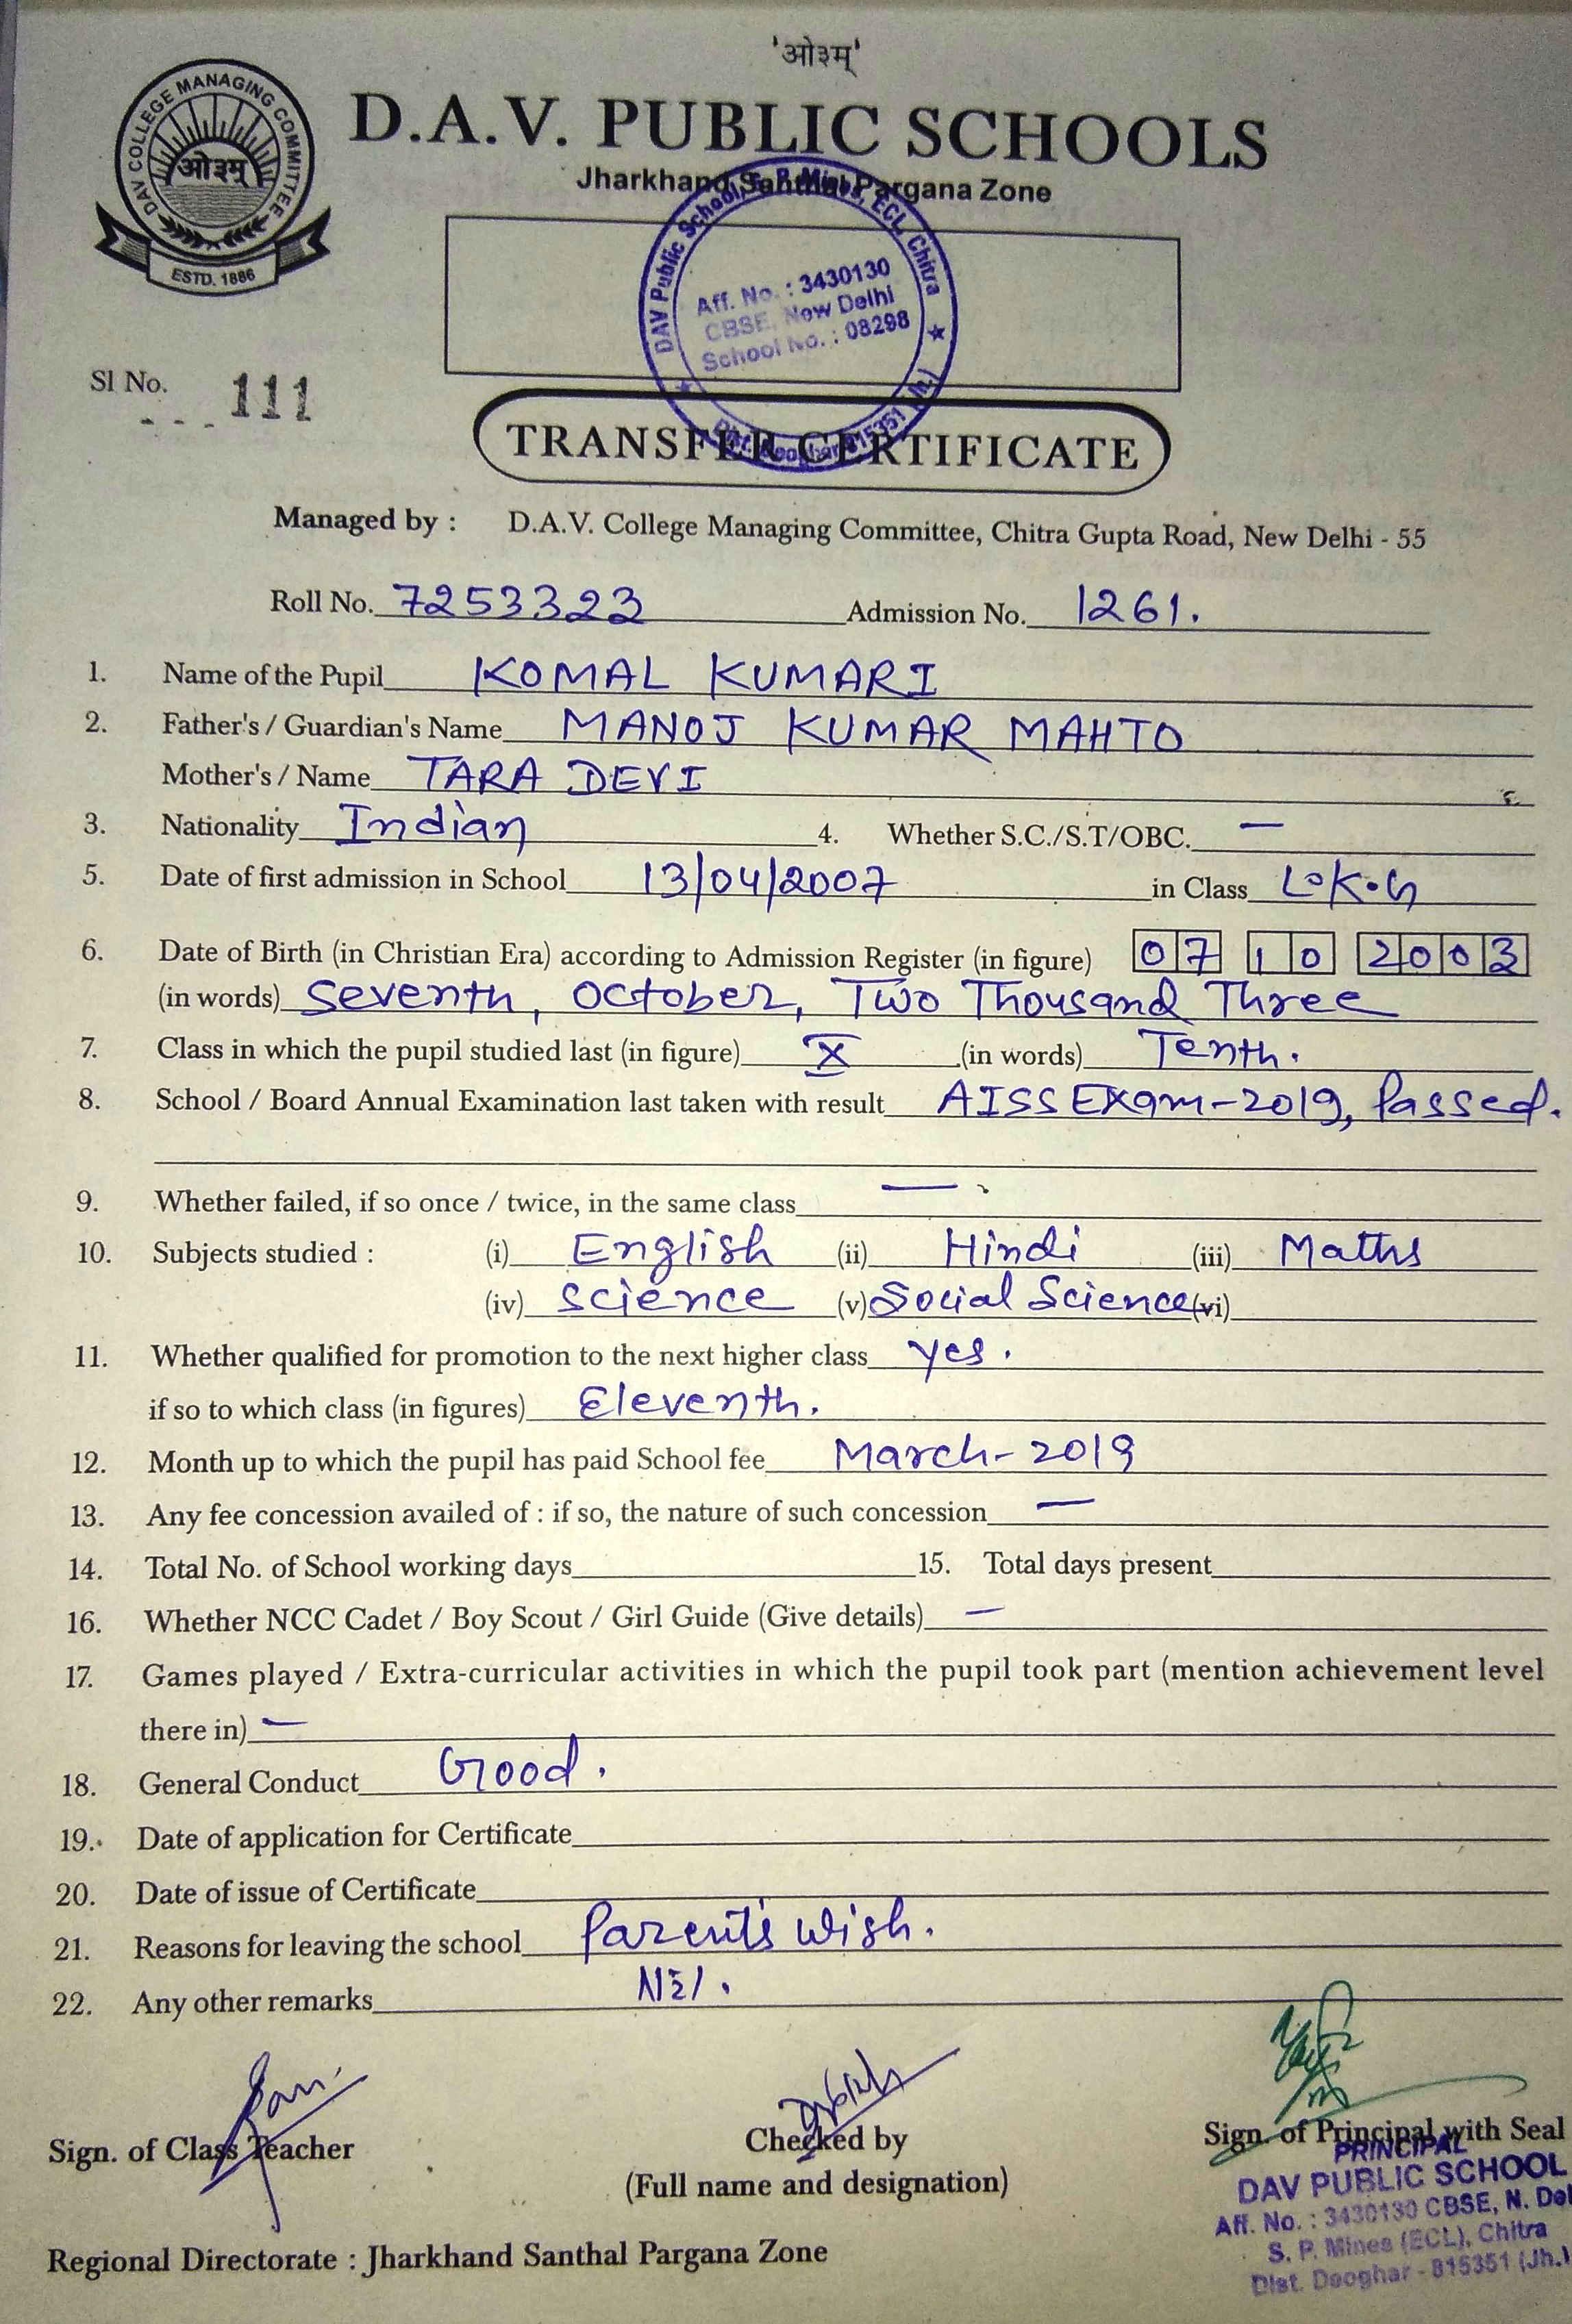 'ओ३म्'
DAV COLLEGE MANAGING COMMITTEE
ओ३म्
ESTD. 1886
D.A.V. PUBLIC SCHOOLS
Jharkhand Santhal Pargana Zone
DAV Public School, S. P. Mines, ECL, Chitra
Aff. No. : 3430130
CBSE, New Delhi
School No. : 08298
Dist. Deoghar 815351 (Jh.)
Sl No. 111
TRANSFER CERTIFICATE
Managed by : D.A.V. College Managing Committee, Chitra Gupta Road, New Delhi - 55
Roll No. 7253323 Admission No. 1261.
1. Name of the Pupil KOMAL KUMARI
2. Father's / Guardian's Name MANOJ KUMAR MAHTO
Mother's / Name TARA DEVI
3. Nationality Indian 4. Whether S.C./S.T/OBC. —
5. Date of first admission in School 13/04/2007 in Class L.K.G
6. Date of Birth (in Christian Era) according to Admission Register (in figure) 07 10 2003
(in words) Seventh, October, Two Thousand Three
7. Class in which the pupil studied last (in figure) X (in words) Tenth.
8. School / Board Annual Examination last taken with result AISS Exam-2019, Passed.
9. Whether failed, if so once / twice, in the same class —
10. Subjects studied : (i) English (ii) Hindi (iii) Maths
(iv) Science (v) Social Science (vi)
11. Whether qualified for promotion to the next higher class yes.
if so to which class (in figures) Eleventh.
12. Month up to which the pupil has paid School fee March-2019
13. Any fee concession availed of : if so, the nature of such concession —
14. Total No. of School working days 15. Total days present
16. Whether NCC Cadet / Boy Scout / Girl Guide (Give details) —
17. Games played / Extra-curricular activities in which the pupil took part (mention achievement level
there in) —
18. General Conduct Good.
19. Date of application for Certificate
20. Date of issue of Certificate
21. Reasons for leaving the school Parent's Wish.
22. Any other remarks Nil.
Sign. of Class Teacher Checked by Sign. of Principal with Seal
(Full name and designation)
PRINCIPAL
DAV PUBLIC SCHOOL
Aff. No. : 3430130 CBSE, N. Del
S. P. Mines (ECL), Chitra
Dist. Deoghar - 815351 (Jh.)
Regional Directorate : Jharkhand Santhal Pargana Zone